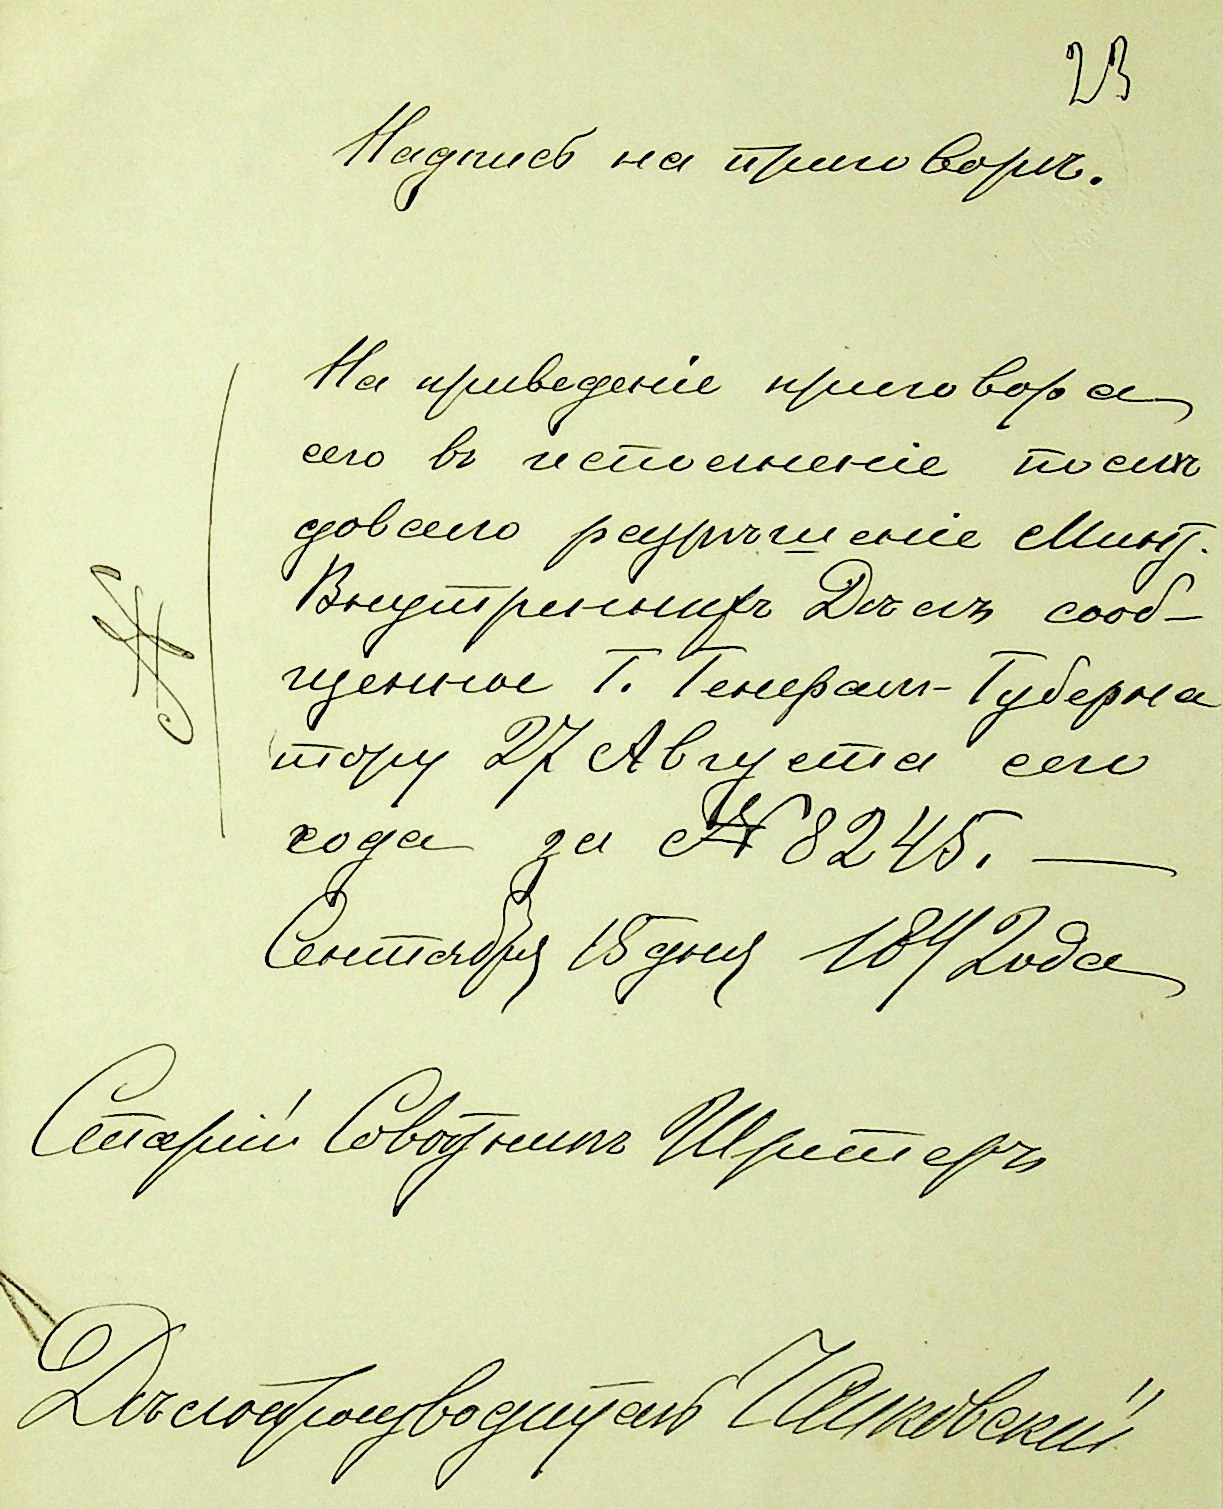 23
Надпись на приговорѣ.
На приведеніе приговора
сего въ исполненіе послѣ
довало разрѣшеніе Минт.
Внутреннихъ Дѣлъ сооб-
щенное Г. Генералъ-Губерна
тору 27 Августа сего
года за № 8245. —
Сентября 15 дня 1842 года
Старій Совѣтникъ
Дѣлопроизводитель